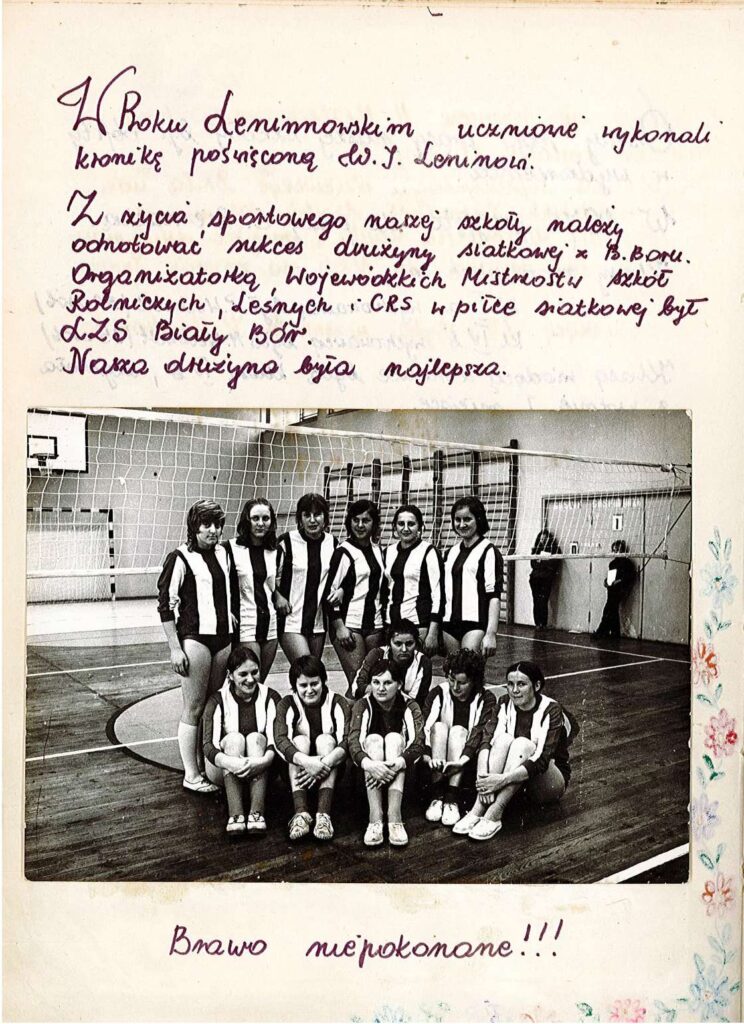 W Roku Leninowskim uczniowie wykonali
kronikę poświęconą W. I. Leninowi.
Z życia sportowego naszej szkoły należy
odnotować sukces drużyny siatkowej z B. Boru.
Organizatorką, Wojewódzkich Mistrzostw Szkół
Rolniczych, Leśnych i CRS w piłce siatkowej był
LZS Biały Bór.
Nasza drużyna była najlepsza.
Brawo niepokonane!!!